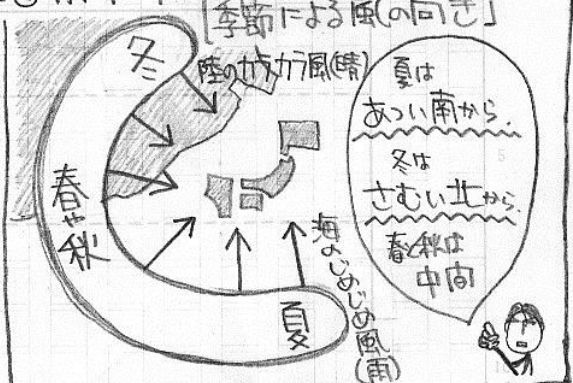 [季節による風の向き]
冬
陸のカラカラ風(晴)
春や秋
夏
海のじめじめ風(雨)
夏は
あつい南から。
冬は
さむい北から。
春と秋は
中間